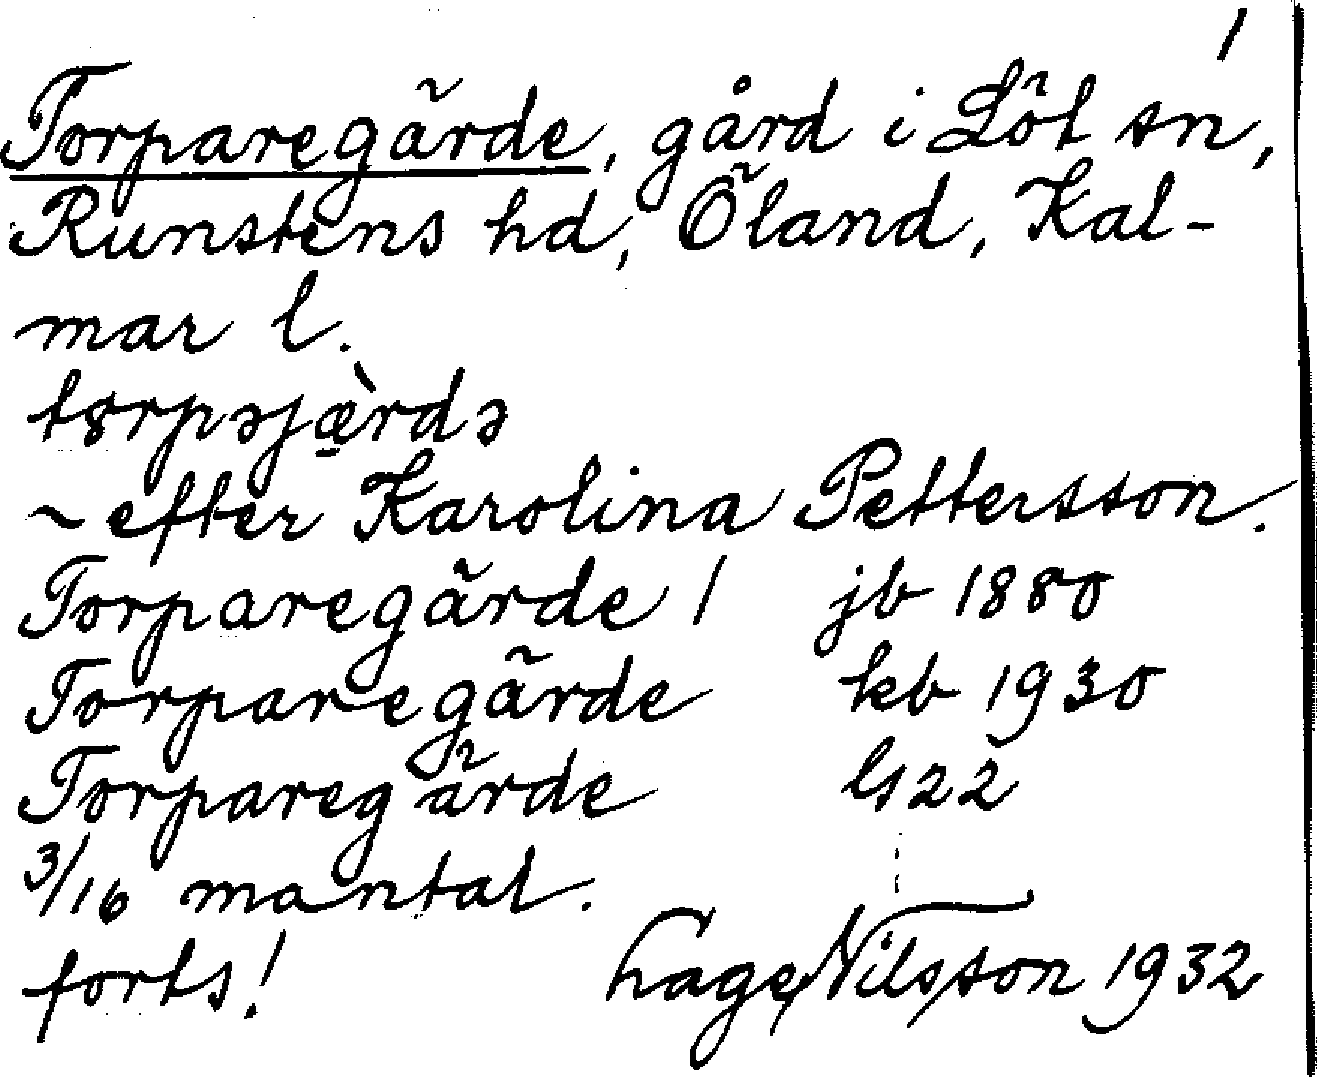 1
Torparegärde, gård i Löt sn,
Runstens hd, Öland, Kal-
mar l.
~ efter Karolina Pettersson.
Torparegärde 1 jb 1880
Torparegärde kb 1930
Torparegärde ls 22
3/16 mantal.
forts! Nilsson 1932